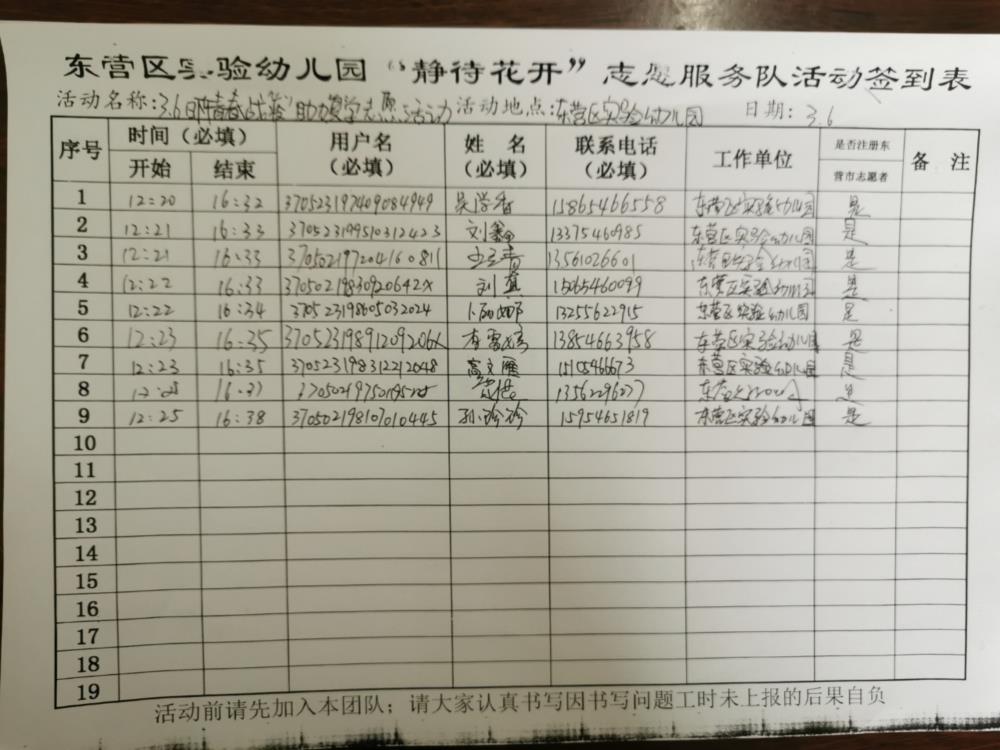 东营区实验幼儿园“静待花开”志愿服务队活动签到表
活动名称:3.6 助 学志愿活动 活动地点:东营区实验幼儿园 日期:3.6
序号 时间（必填） 用户名（必填） 姓名（必填） 联系电话（必填） 工作单位 是否注册东营市志愿者 备注
开始 结束
1 12:20 16:32 370523197409084949 吴学香 15865466558 东营区实验幼儿园 是
2 12:21 16:33 370523199510312423 刘 13375460985 东营区实验幼儿园 是
3 12:21 16:33 370502197204160811 13561026601 东营区实验幼儿园 是
4 12:22 16:33 37050219830920642X 刘真 15065460099 东营区实验幼儿园 是
5 12:22 16:34 370523198605032024 13255622915 东营区实验幼儿园 是
6 12:23 16:35 37052319891209206X 李雪 13854663958 东营区实验幼儿园 是
7 12:23 16:35 370523198312212048 高文雁 东营区实验幼儿园 是
8 16:37 13562296277 是
9 12:25 16:38 370502198107010445 孙珍珍 15954651819 东营区实验幼儿园 是
10
11
12
13
14
15
16
17
18
19
活动前请先加入本团队；请大家认真书写因书写问题工时未上报的后果自负